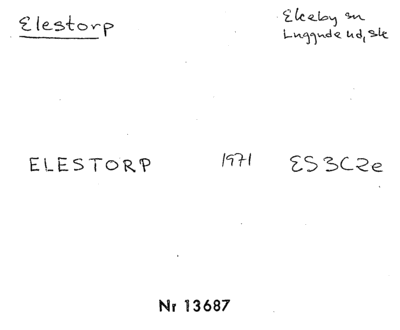 Elestorp
Ekeby sn
Luggude hd, Sk
ELESTORP 1971 ES3C2e
Nr 13687